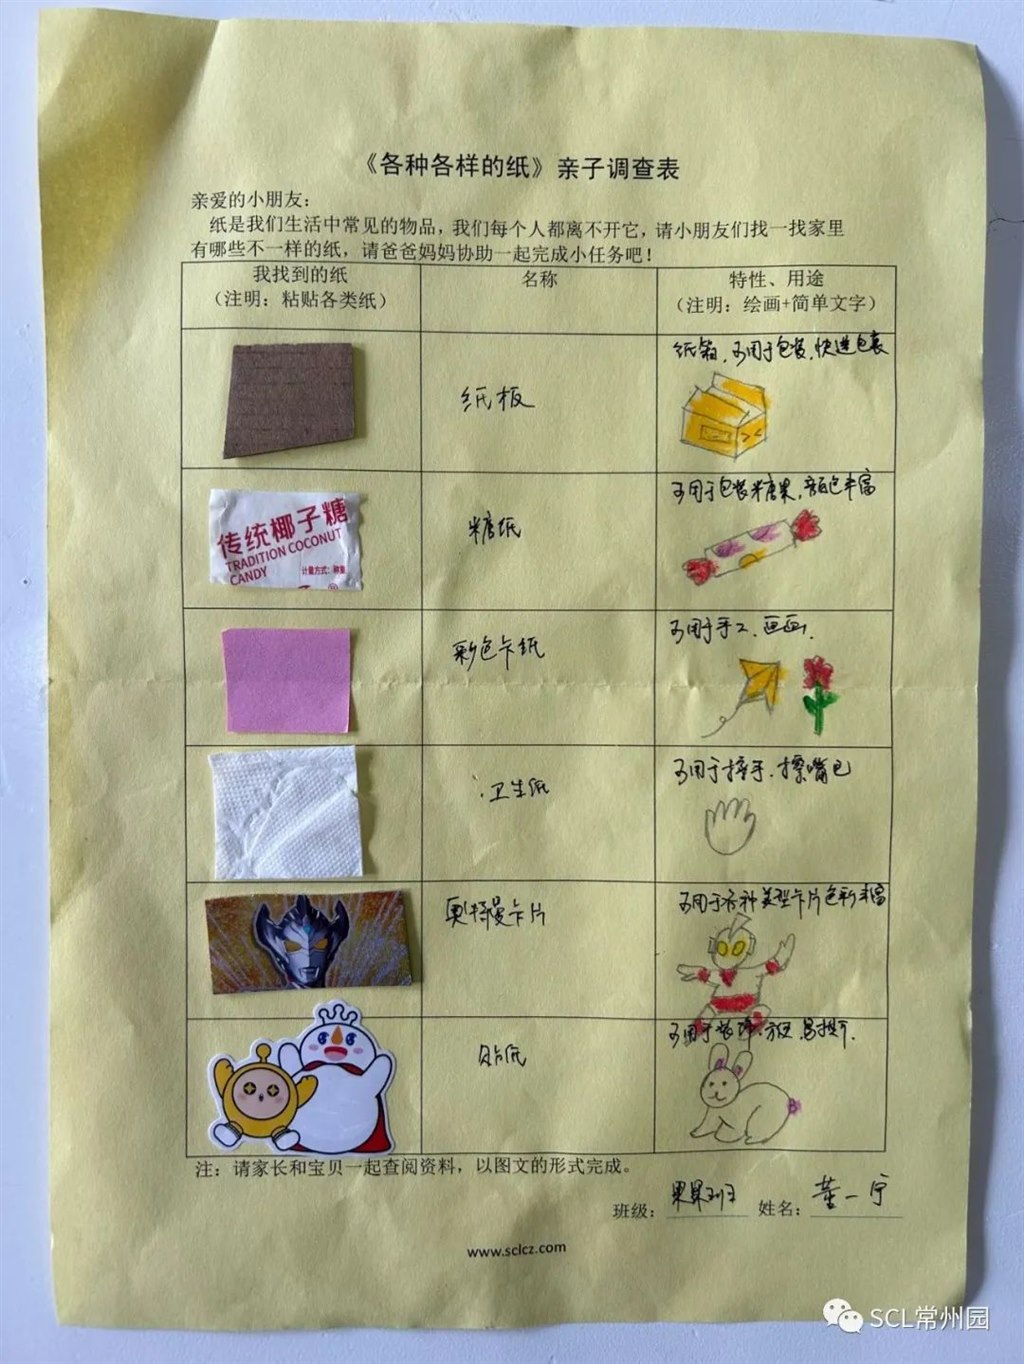 《各种各样的纸》亲子调查表
亲爱的小朋友：
纸是我们生活中常见的物品，我们每个人都离不开它，请小朋友们找一找家里
有哪些不一样的纸，请爸爸妈妈协助一起完成小任务吧！
我找到的纸
（注明：粘贴各类纸）
名称
特性、用途
（注明：绘画+简单文字）
纸板
纸箱，可用于包装，快递包裹
传统椰子糖
TRADITION COCONUT
CANDY
计量方式：称重
糖纸
可用于包装糖果，颜色丰富
彩色卡纸
可用于手工、画画．
卫生纸
可用于擦手．擦嘴巴
奥特曼卡片
可用于各种类型卡片色彩丰富
贴纸
可用于装饰、方便、易撕下．
注：请家长和宝贝一起查阅资料，以图文的形式完成。
班级：果果班 姓名：董一宁
www.sclcz.com
SCL常州园